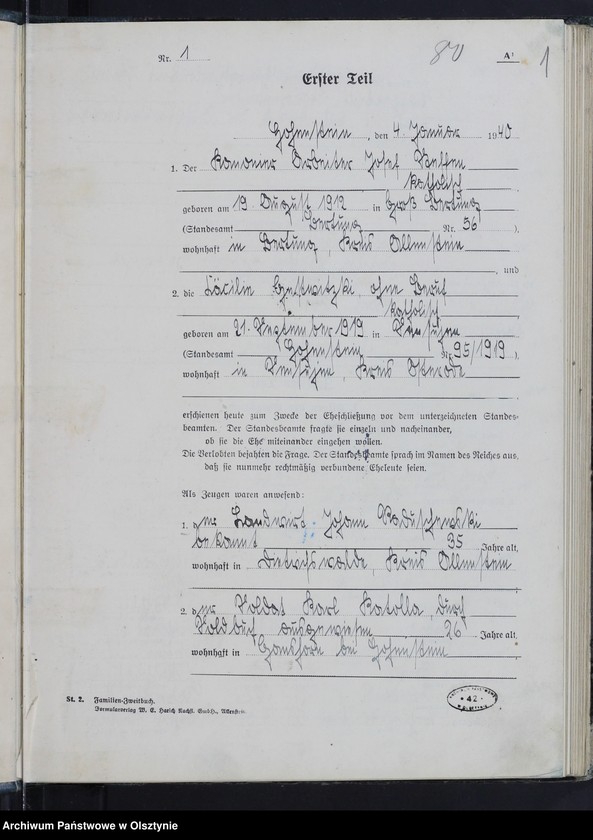 Nr. 1 80 A¹ 1
Erster Teil
Hohenstein, den 4. Januar 1940
1. Der Arbeiter Josef
katholisch
geboren am 19. August 1912 in Groß Bertung
(Standesamt Bertung Nr. 56),
wohnhaft in Bertung, Kreis Allenstein
, und
2. die Cäcilie, ohne Beruf
katholisch
geboren am 21. September 1919 in
(Standesamt Hohenstein Nr. 95/1919),
wohnhaft in, Kreis Osterode
erschienen heute zum Zwecke der Eheschließung vor dem unterzeichneten Standes-
beamten. Der Standesbeamte fragte sie einzeln und nacheinander,
ob sie die Ehe miteinander eingehen wollen.
Die Verlobten bejahten die Frage. Der Standesbeamte sprach im Namen des Reiches aus,
daß sie nunmehr rechtmäßig verbundene Eheleute seien.
Als Zeugen waren anwesend:
1. der Landwirt Johann
bekannt 35 Jahre alt,
wohnhaft in Dietrichswalde, Kreis Allenstein
2. der Soldat Karl Katolla, durch
Soldbuch ausgewiesen 26 Jahre alt,
wohnhaft in bei Hohenstein
St. 2. Familien-Zweitbuch.
Formularverlag W. E. Harich Nachf. GmbH., Allenstein.
* 42 *
Archiwum Państwowe w Olsztynie